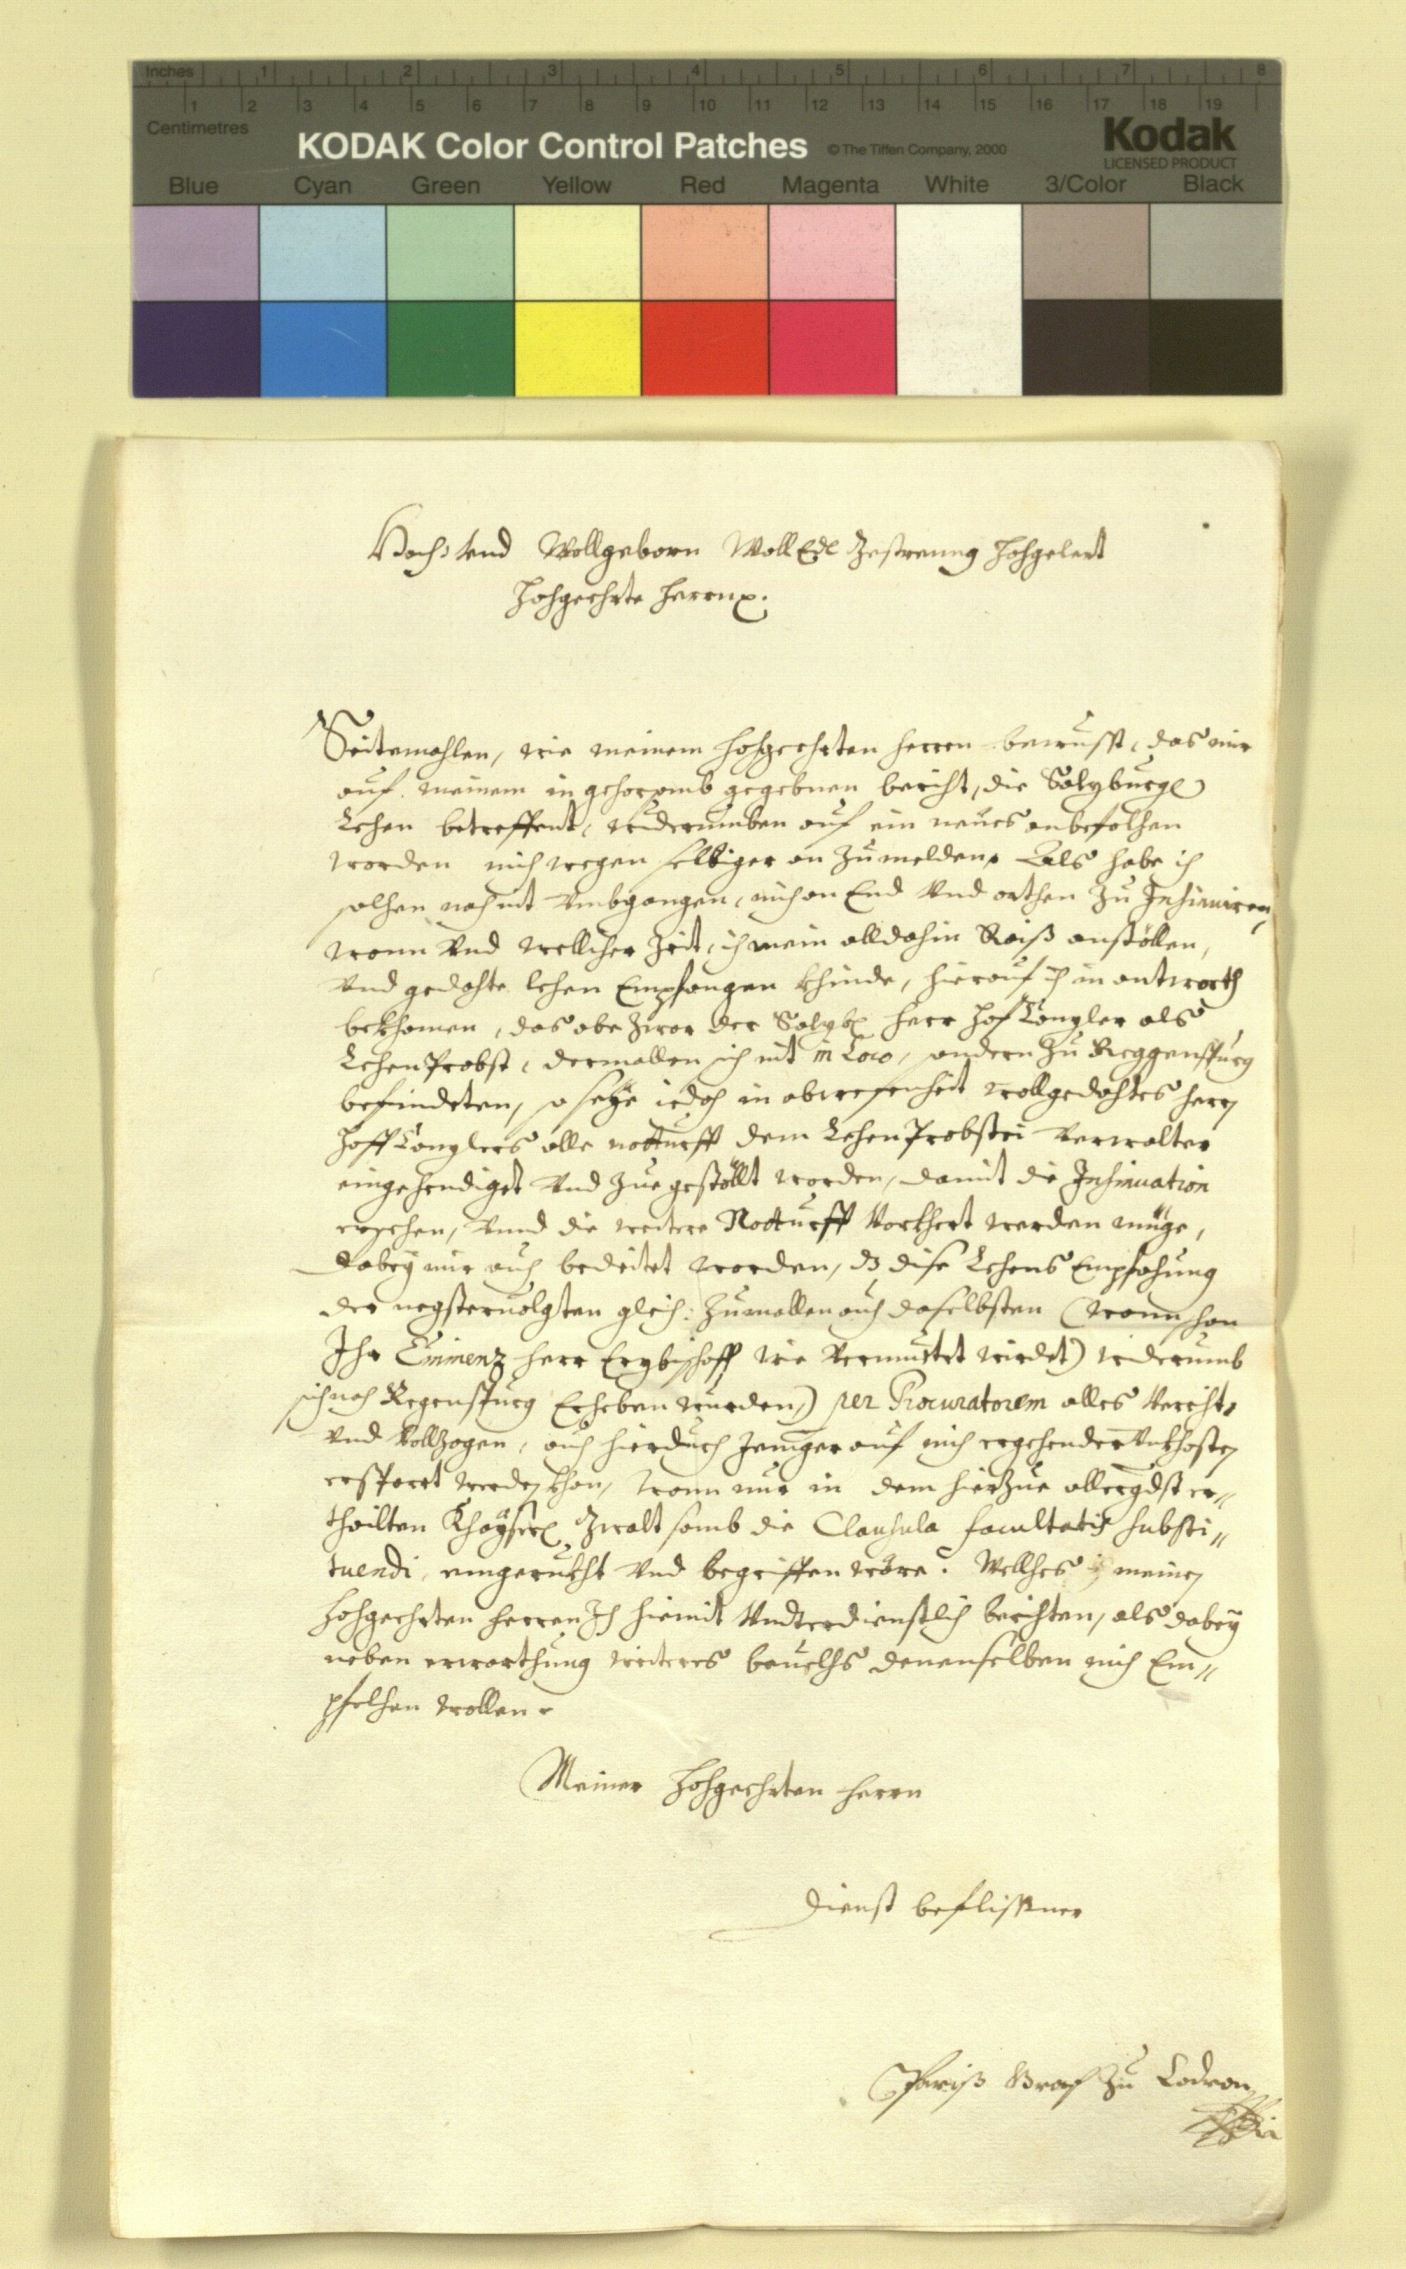 Inches 1 2 3 4 5 6 7 8
1 2 3 4 5 6 7 8 9 10 11 12 13 14 15 16 17 18 19
Centimetres
KODAK Color Control Patches © The Tiffen Company, 2000 Kodak
LICENSED PRODUCT
Blue Cyan Green Yellow Red Magenta White 3/Color Black
Hoch: vnd Wollgeborn WollEdl Gestreng Hochgelert
Hochgeehrte Herrn
Seitemahlen, wie meinem hochgeehrten Herren bewusst, das mir
auf meinem in gehoramb gegebnen bericht, die Salzburg
Lehen betreffent, widerumben auf ein neues anbefolhen
worden mich wegen selbiger an Zumelden, Als habe ich
solhen nach nit vmbgangen, mich an End vnd orthen Zu Insinuiren,
wann vnd wellicher Zeit, ich mein alldahin Raiß anstöllen,
vnd gedachte lehen Empfangen khinde, hierauf ich in antworth
bekhomen, das obe Zwar der Salzb Herr Hof Canzler als
Lehen Probst, dermallen sich nit in Loco, sondern Zu Reggenspurg
befindeten, so seye iedoch in abwesenheit wollgedachtes Herrn
Hoff Canzlers alle notturfft dem Lehen Probstei Verwalter
eingehendiget vnd Zuegestöllt worden, damit die Insinuation
ergehen, vnnd die weitere Notturfft Vorkhert werden müge,
dabey mir auch bedeitet worden, dz dise Lehens Empfahung
der negsteruolgten gleich: Zumallen auch daselbsten (wann schon
Ihr Eminenz Herr Erzbischoff wie Vermuttet wirdet) widerumb
sich nach Regenspurg Erheben wurden,) per Procuratorem alles Vericht,
vnd Vollzogen, auch hierduch Jeniger auf mich ergehender vnkhosten
ersparet werden khan, wann nur in dem hierzue allergdst er-
theilten Khayserl Gwalt samb die Clausula facultatis substi-
tuendi, eingerukht vnd begriffen wäre. Wellches meinen
hochgeehrten Herren Ich hiemit Vndterdienstlich berichten, als dabey
neben erwarthung weiteres beuelhs denenselben mich Em-
pfelhen wollen.
Meiner Hochgeehrten Herrn
Dienst beflissner
Pariß Graf Zu Lodron